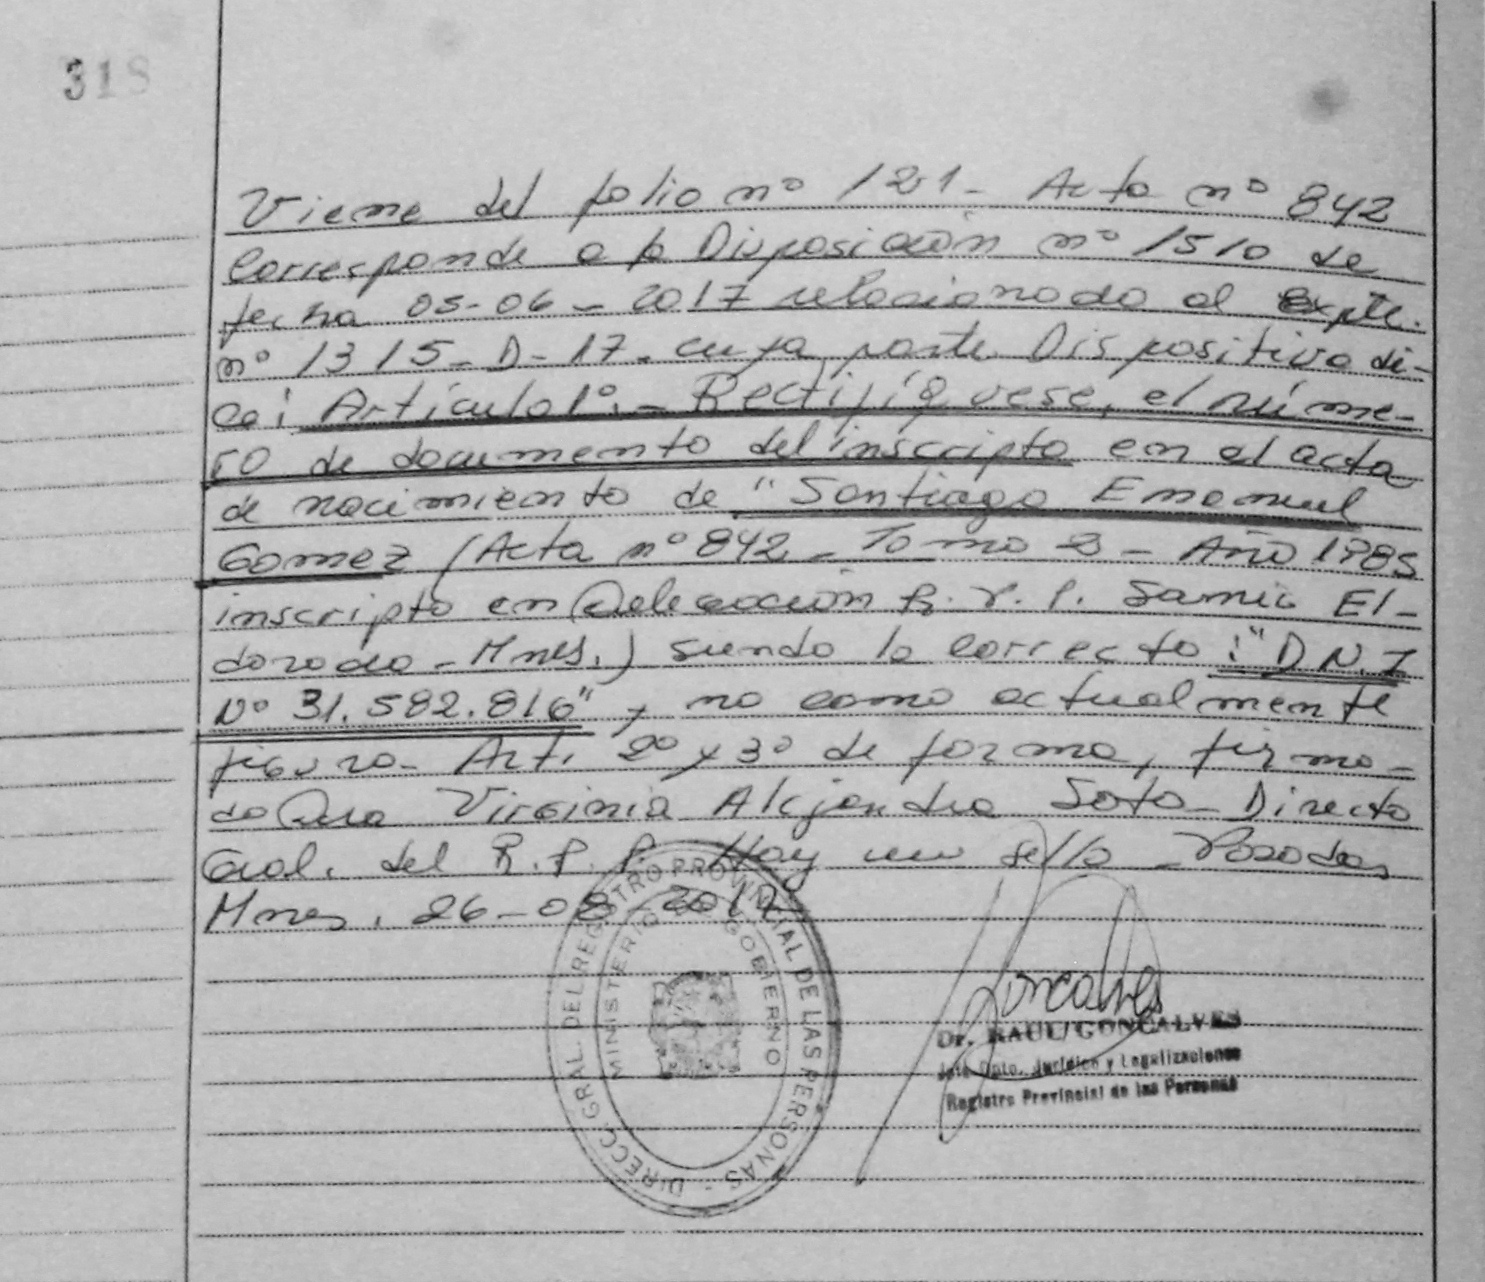 318
Viene del folio nº 121- Acta nº 842
Corresponde a la Disposición nº 1510 de
fecha 05-06-2017 relacionado al Expte.
nº 1315-D-17. cuya parte Dispositiva di-
ce: Artículo 1º.- Rectifíquese, el núme-
ro de documento del inscripto en el acta
de nacimiento de "Santiago Emanuel
Gomez (Acta nº 842- Tomo 3- Año 1985
inscripto en Delegación R.P.P. Samic El-
dorado-Mnes.) siendo lo correcto: "D.N.I
Nº 31.582.816" y no como actualmente
figura- Art. 2º y 3º de forma, firma-
do Dra Virginia Alejandra Soto- Directo
Gral. del R.P.P. Hay un sello - Posadas
Mnes. 26-08-2017
DIRECC. GRAL. DEL REGISTRO PROVINCIAL DE LAS PERSONAS -
MINISTERIO DE GOBIERNO
Goncalves
Dr. RAUL GONCALVES
Jefe Dpto. Jurídico y Legalizaciones
Registro Provincial de las Personas